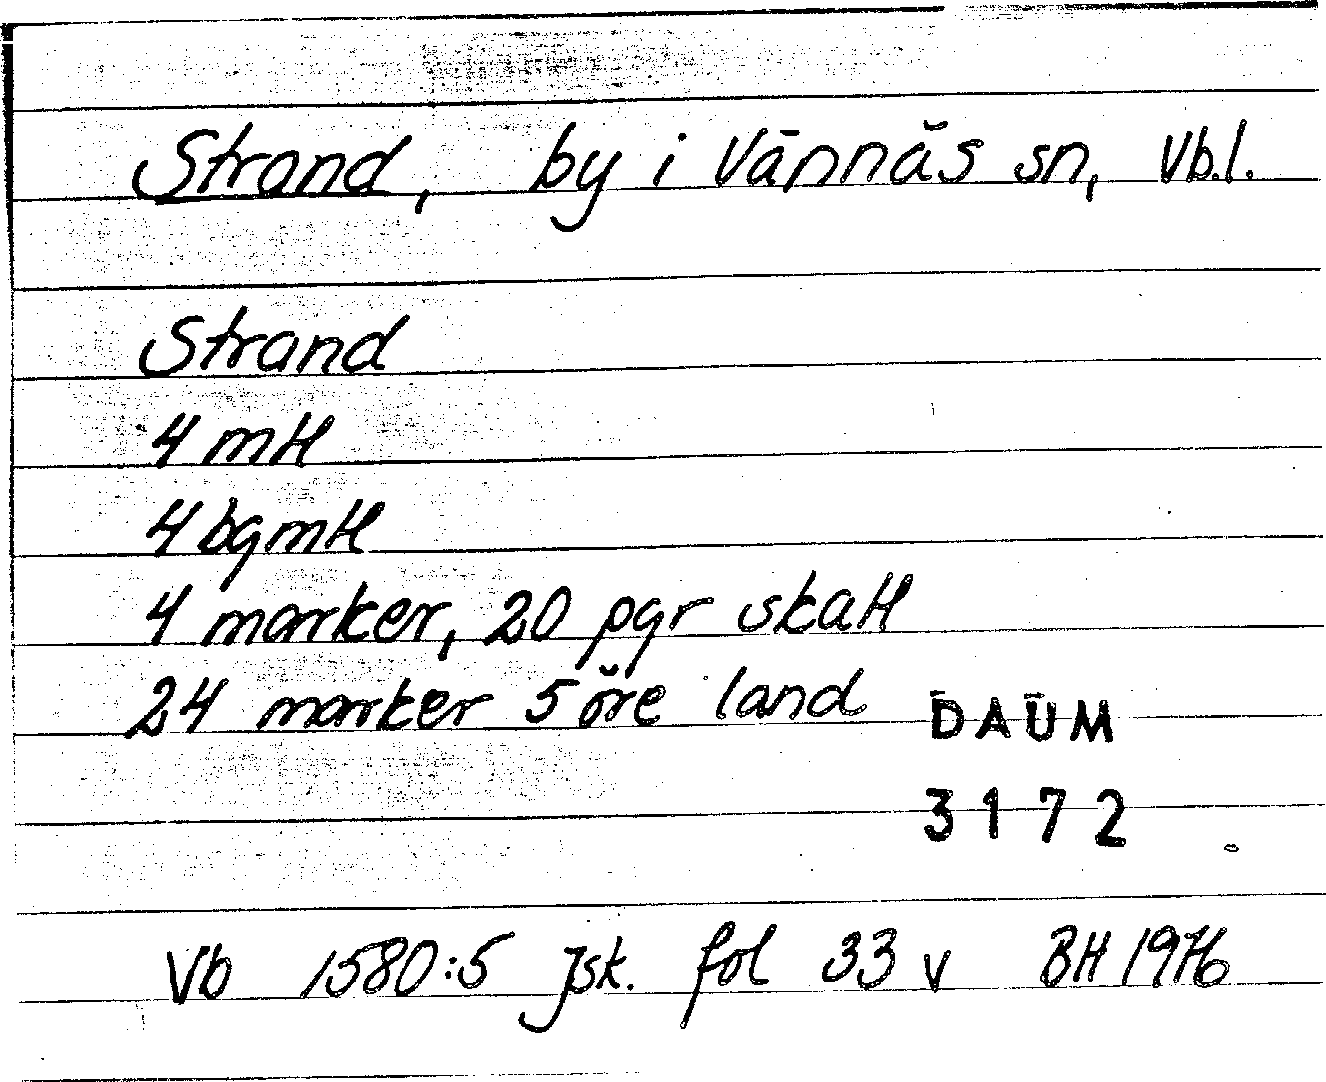 Strand, by i Vännäs sn, Vb.l.
Strand
4 mtl
4 bgmtl
4 marker, 20 pgr skatt
24 marker 5 öre land
DAUM
3172
Vb 1580:5 Jsk. fol 33 v BH 1976